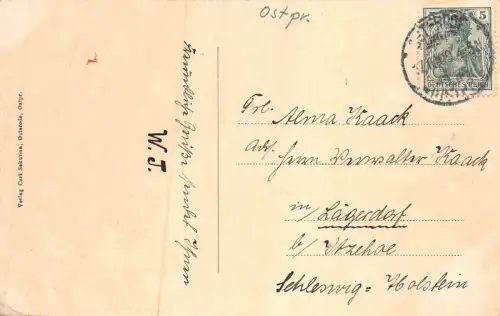 Ostpr.
5
DEUTSCHES REICH
Frl. Alma Kaack
Adr. Herrn Verwalter Kaack
in Lägerdorf
b/ Itzehoe
Schleswig-Holstein
Freundliche Grüße sendet Ihnen
W. J.
Verlag Carl Osterode, Ostpr.